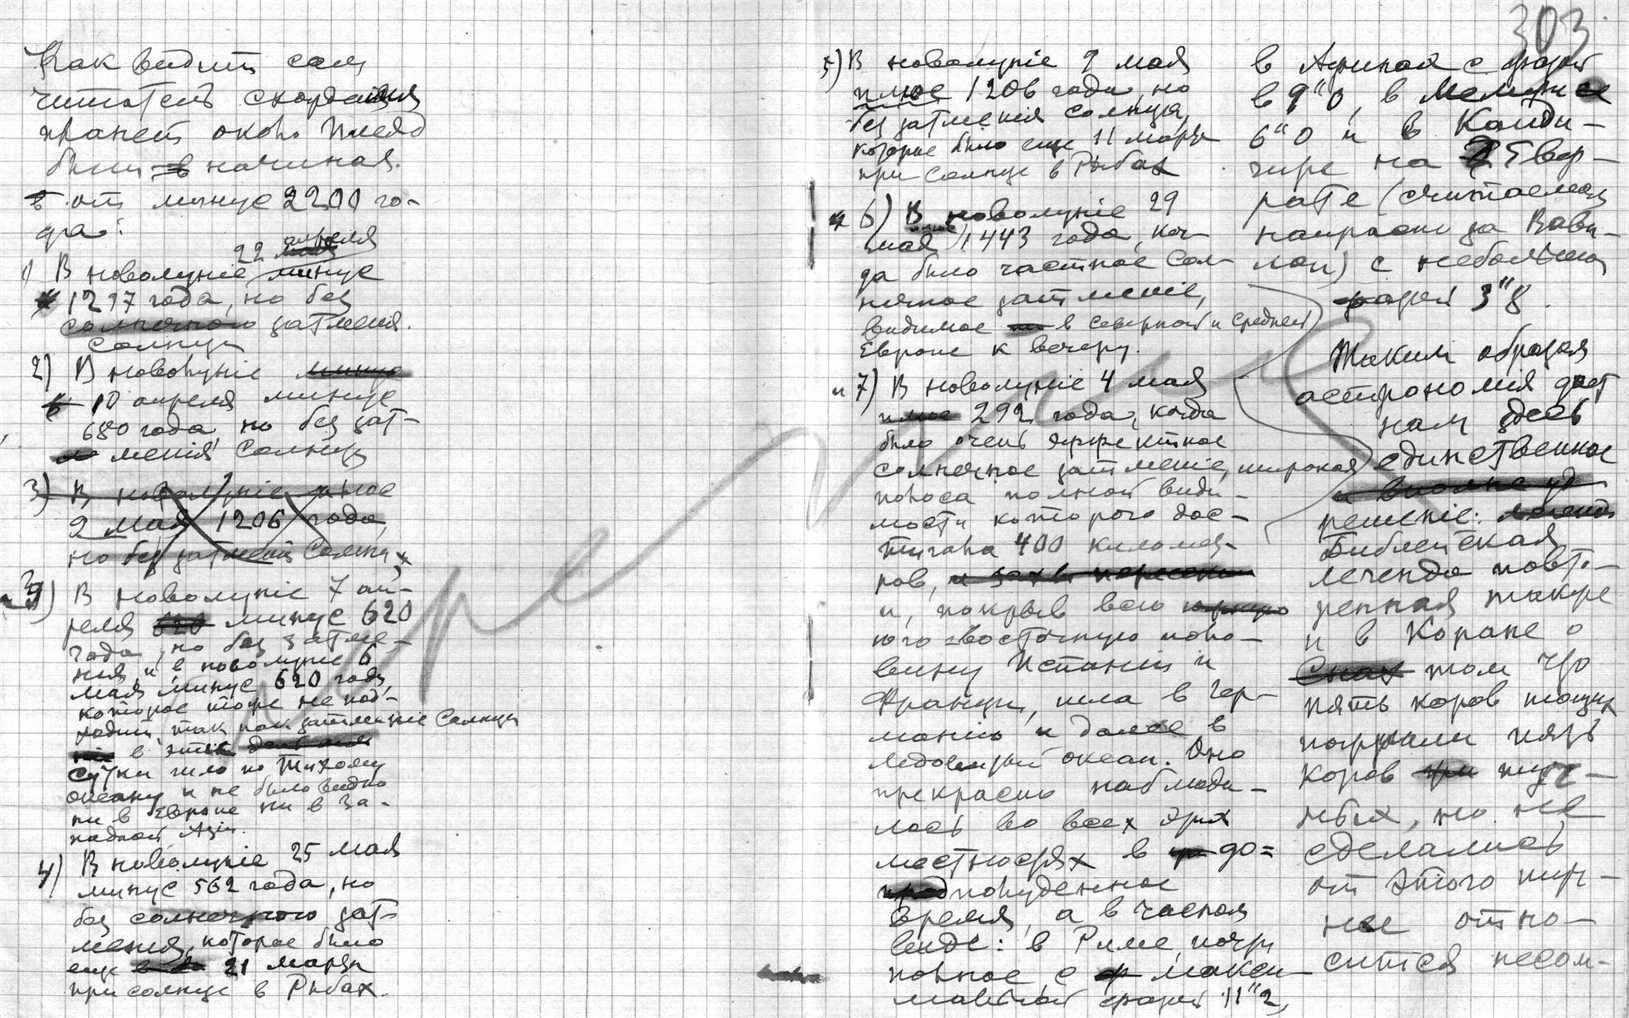 303
Как видит сам
читатель скопления
планет около Плеяд
были в начиная
от минус 2200 го-
да:
22 апреля
1) В новолуние минус
1297 года, но без
солнечного затмения.
солнца
2) В новолуние минус
10 апреля минус
680 года но без зат-
мения Солнца
3) В новолуние плюс
9 мая 1206 года,
но без затмений Солнца
3) В новолуние 7 ап-
реля 620 минус 620
года, но без затме-
ния, и в новолуние 6
мая минус 620 года,
которое тоже не под-
ходит, так как затмение Солнца
в эти
сутки шло по Тихому
океану и не было видно
ни в Европе ни в За-
падной Азии.
4) В новолуние 25 мая
минус 562 года, но
без солнечного зат-
мения, которое было
еще 21 марта
при солнце в Рыбах.
5) В новолуние 9 мая
плюс 1206 года, но
без затмения солнца,
которое было еще 11 марта
при солнце в Рыбах
6) В новолуние 29
мая плюс 1443 года, ког-
да было частное сол-
нечное затмение,
видимое в северной и средней
Европе к вечеру.
и 7) В новолуние 4 мая
плюс 292 года, когда
было очень эффектное
солнечное затмение, широкая
полоса полной види-
мости которого дос-
тигала 400 километ-
ров,
и, покрыв всю
юго-восточную поло-
вину Испании и
Франции, шла в Гер-
манию и далее в
Ледовитый океан. Оно
прекрасно наблюда-
лось во всех этих
местностях в до=
полуденное
время, а в частном
виде: в Риме, почти
полное с макси-
мальной фазой 11"2,
в Афинах с фазой
в 9"0, в Мемфисе
6"0 и в Каиди-
чире на Евф-
рате (считаемом
напрасно за Вави-
лон) с небольшой
фазой 3"8.
Таким образом
астрономия дает
нам здесь
единственное
и вполне
решение:
Библейская
легенда повто-
ренная также
и в Коране о
том что
пять коров тощих
пожрали пять
коров туч-
ных, но не
сделались
от этого туч-
нее отно-
сится несом-